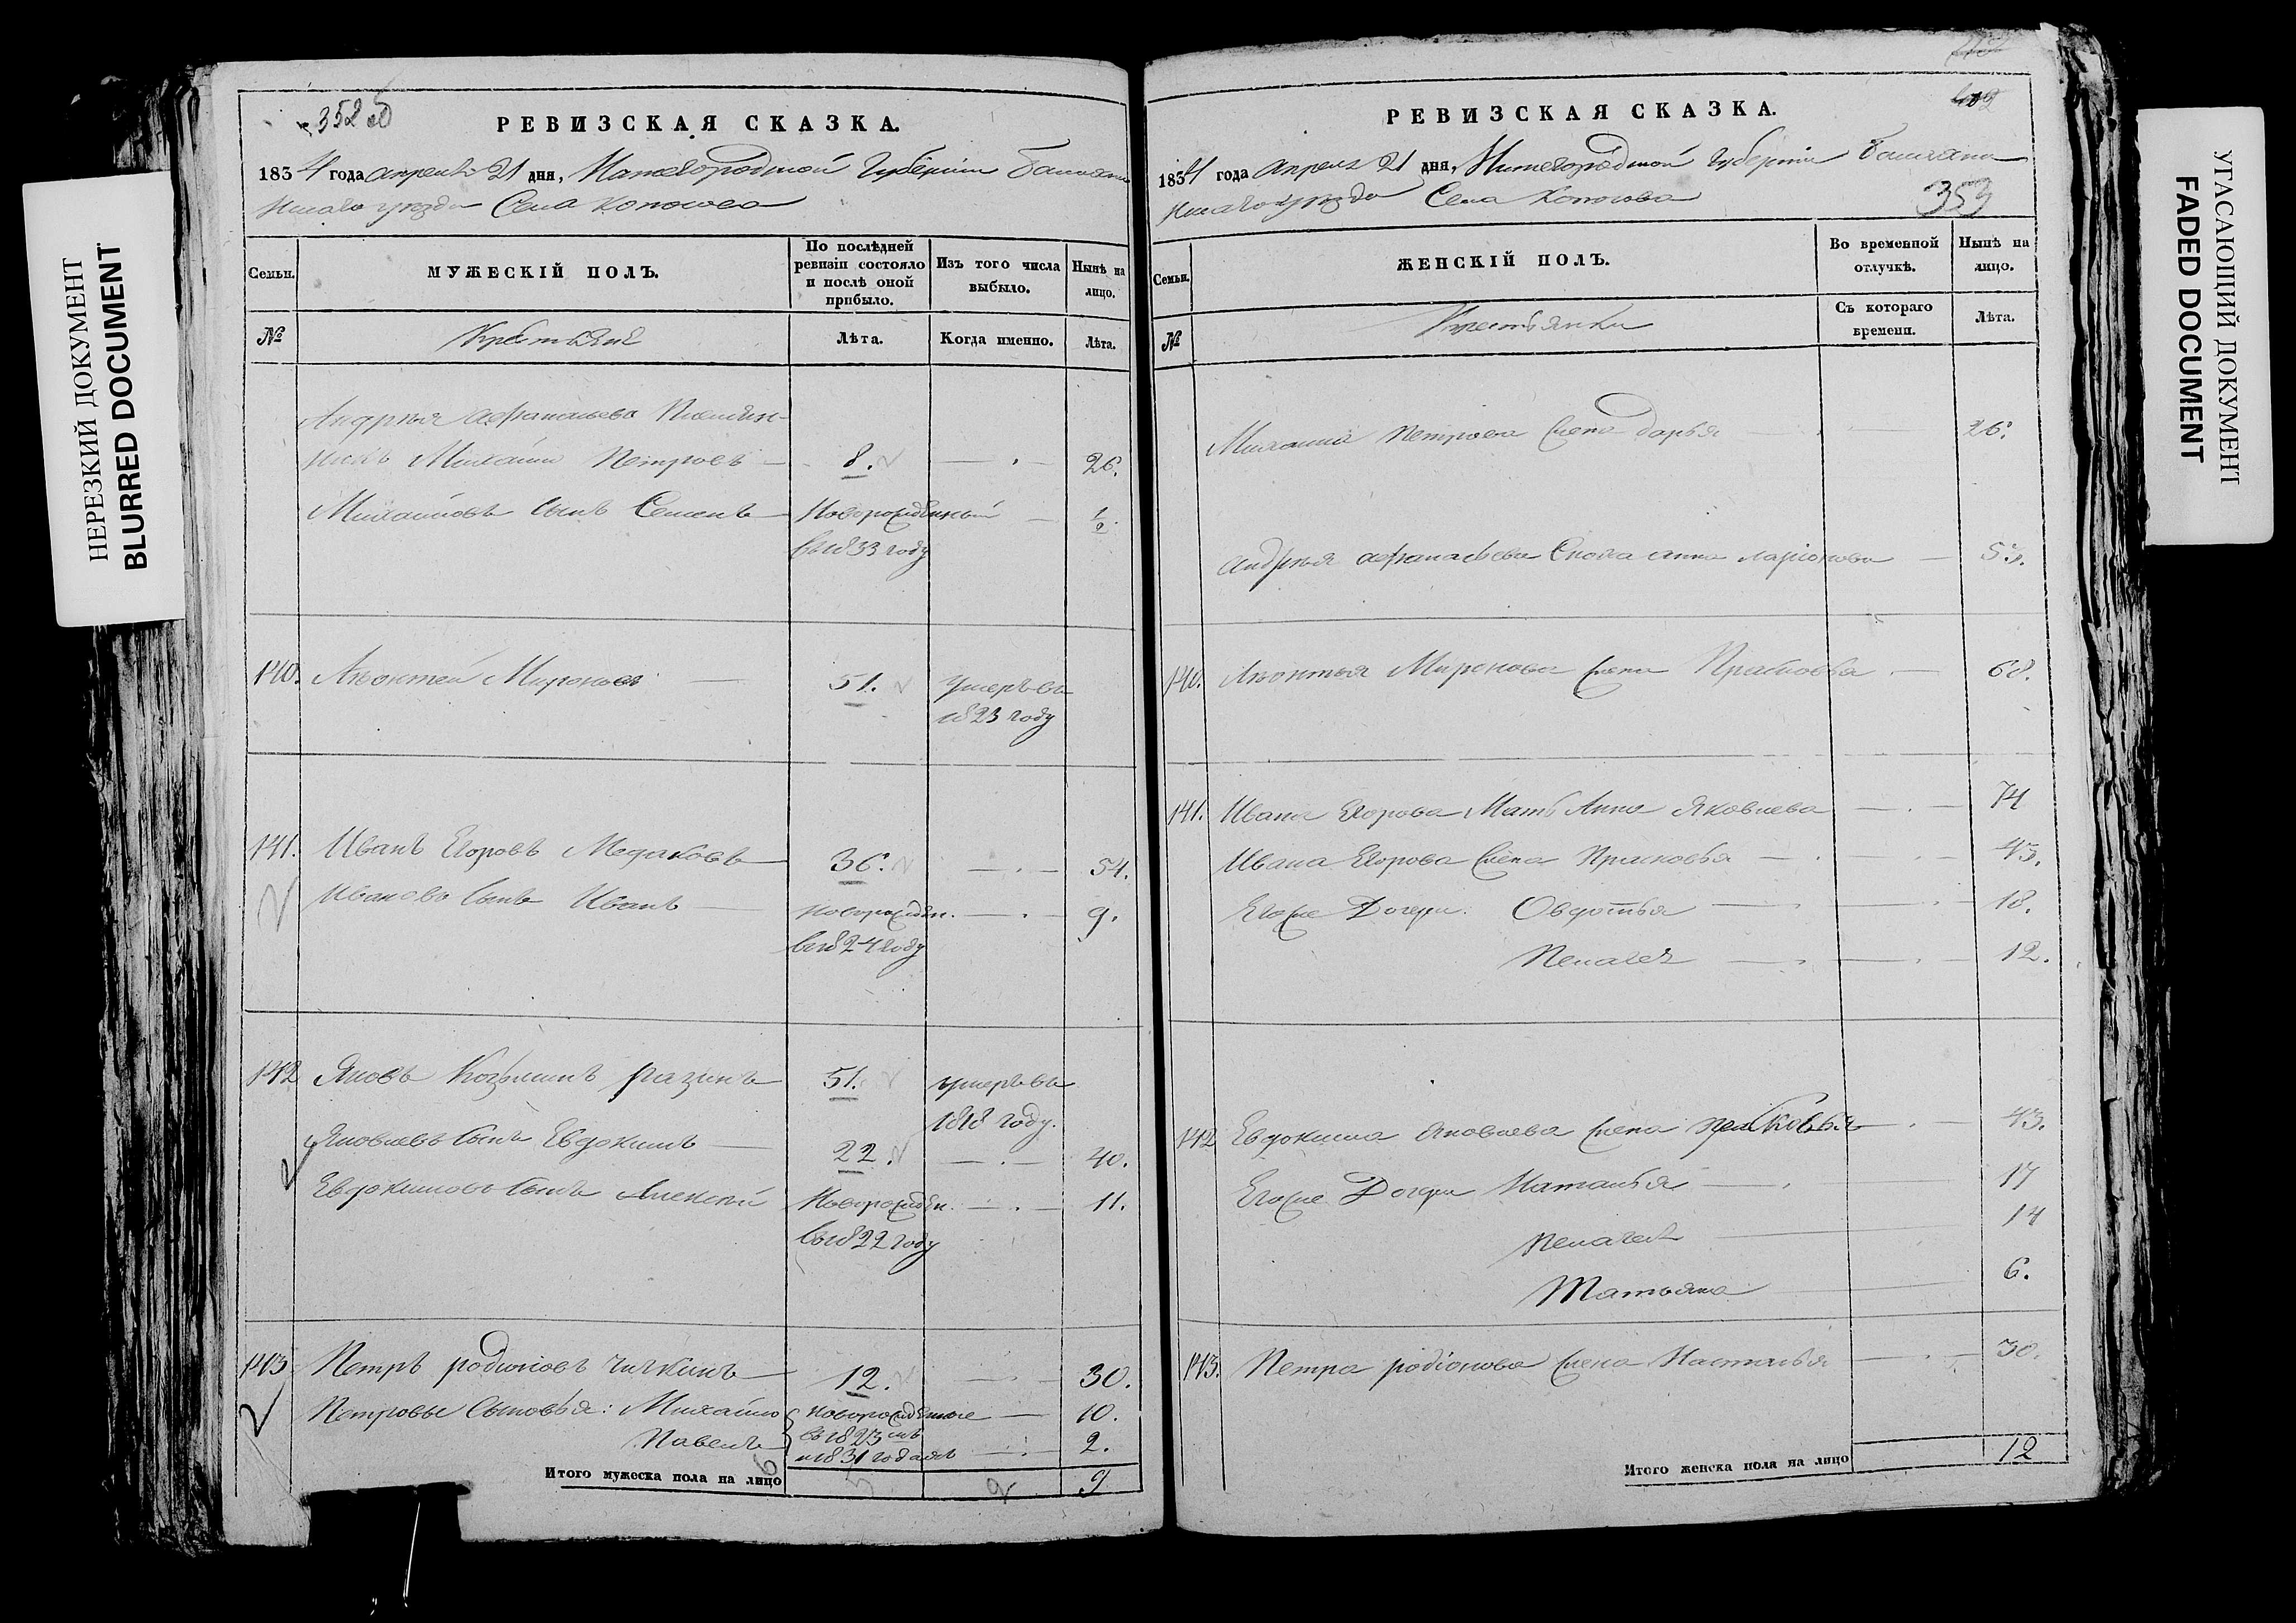 НЕРЕЗКИЙ ДОКУМЕНТ
BLURRED DOCUMENT
352 об
РЕВИЗСКАЯ СКАЗКА.
1834 года апреля 21 дня, Нижегородской Губернiи Балахнин
скаго уезда Села Копосова
Семьи.
МУЖЕСКІЙ ПОЛЪ.
По послѣдней ревизіи состояло и послѣ оной прибыло.
Изъ того числа выбыло.
Нынѣ на лицо.
№
Крестьяне
Лѣта.
Когда именно.
Лѣта.
Андрея Афанасьева Племян-
никъ Михайло Петровъ 8. 26.
Михайловъ сынъ Семенъ Новорожденный 1/2
въ 1833 году
140. Леонтей Мироновъ 51. умеръ въ
1823 году
141. Иванъ Егоровъ Медаковъ 36. 54.
Ивановъ сынъ Иванъ новорожден. 9.
въ 1824 году
142 Яковъ Козминъ разинъ 51. умеръ въ
1818 году.
Яковлевъ сынъ Евдокимъ 22. 40.
Евдокимовъ сынъ Алексѣй Новорожден. 11.
въ 1822 году
143 Петръ родионовъ чичкинъ 12. 30.
Петровы сыновья: Михайло новорожденные 10.
Павелъ въ 1823 мъ
и 1831 годахъ 2.
Итого мужеска пола на лицо 9
6
РЕВИЗСКАЯ СКАЗКА.
1834 года апреля 21 дня, Нижегородской губернiи Балахнин
скаго уезда Села Копосова
353
Семьи.
ЖЕНСКІЙ ПОЛЪ.
Во временной отлучкѣ.
Нынѣ на лицо.
№
Крестьянки
Съ котораго времени.
Лѣта.
Михайла Петрова жена дарья 26.
Андрея афанасьева сноха анна ларiонова 53.
140. Леонтья Миронова жена Прасковья 68.
141. Ивана Егорова Мать Анна Яковлева 74
Ивана Егорова жена Прасковья 43.
Егоже Дочери: Овдотья 18.
Пелагея 12.
142 Евдокима Яковлева жена прасковья 43.
Егоже Дочери Наталья 17
Пелагея 14
Татьяна 6.
143. Петра родiонова жена Наталья 30.
Итого женска пола на лицо 12
УГАСАЮЩИЙ ДОКУМЕНТ
FADED DOCUMENT